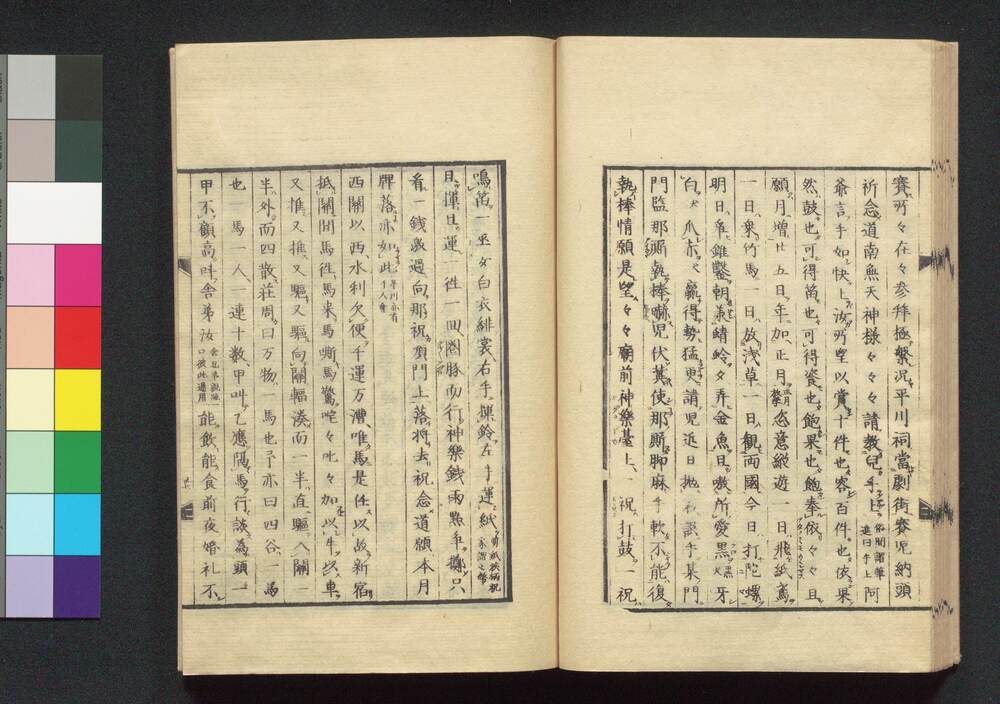 賽所々在々参拜極繁况平川祠當劇街賽児納頭
祈念道南無天神様々々々請教兒手上俗間謂筆進曰手上阿
爺言手如快上汝所望以賞十件也容百件也依果
然鼓也可得笛也可得瓷也飽果也飽奉依々々且
願月増廿五日年加正月恣意縦遊一日飛紙鳶
一日乗竹馬一日放浅草一日観両國今日打陀螺
明日錐鑿朝羨蜻蛉夕弄金魚日嗾所愛黒犬黒牙
白犬爪赤犬羸得勢猛更請児近日手某門
門監那厮執棒嚇児伏冀使那厮脚麻手軟不能復
執棒情願是望々々廟前神樂䑓上一祝打鼓一祝
鳴笛一巫女白衣緋裳右手操鈴左手運紙
且揮且運一徃一叫豚而行神樂銭両點手擲只
看一銭激過向那祝頂門上落将去祝念道願本月
牌落亦如此千人會
西關以西水利欠便千運万漕唯馬是任以故新宿
抵關間馬徃馬来馬嘶馬驚咤々叱々加以牛以車
又惟又推又驅又驅向關輻湊而一半直驅入關一
半外而四散荘周曰万物一馬也予亦曰四谷一馬
也一馬一人一連十数甲叫乙應隔馬行談為頭一
甲不顧高叫舎弟汝口彼此通用能飲能食前夜婚礼不